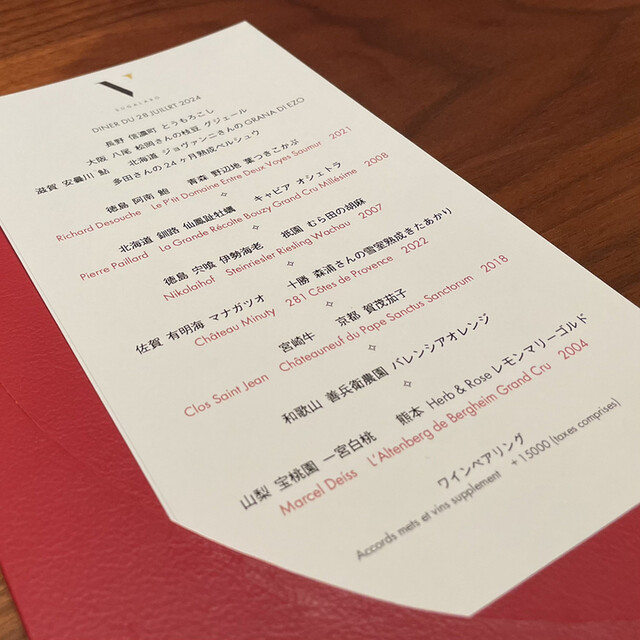 DINER DU 28 JUILLET 2024
長野 信濃町 とうもろこし
大阪 八尾 松岡さんの枝豆 グジェール
滋賀 安曇川 鮎 北海道 ジョヴァンニさんのGRANA DI EZO
多田さんの24ヶ月熟成ペルシュウ
徳島 阿南 鮑 青森 野辺地 葉つきこかぶ
Richard Desouche Le P'tit Domaine Entre Deux Voyes Saumur 2021
北海道 釧路 仙鳳趾牡蠣 キャビア オシェトラ
Pierre Paillard La Grande Récolte Bouzy Grand Cru Millésime 2008
徳島 宍喰 伊勢海老 祇園 むら田の胡麻
Nikolaihof Steinriesler Riesling Wachau 2007
佐賀 有明海 マナガツオ 十勝 森浦さんの雪室熟成きたあかり
Château Minuty 281 Côtes de Provence 2022
宮崎牛 京都 賀茂茄子
Clos Saint Jean Châteauneuf du Pape Sanctus Sanctorum 2018
和歌山 善兵衛農園 バレンシアオレンジ
山梨 宝桃園 一宮白桃 熊本 Herb & Rose レモンマリーゴルド
Marcel Deiss L'Altenberg de Bergheim Grand Cru 2004
ワインペアリング
Accords mets et vins supplement +15000 (taxes comprises)